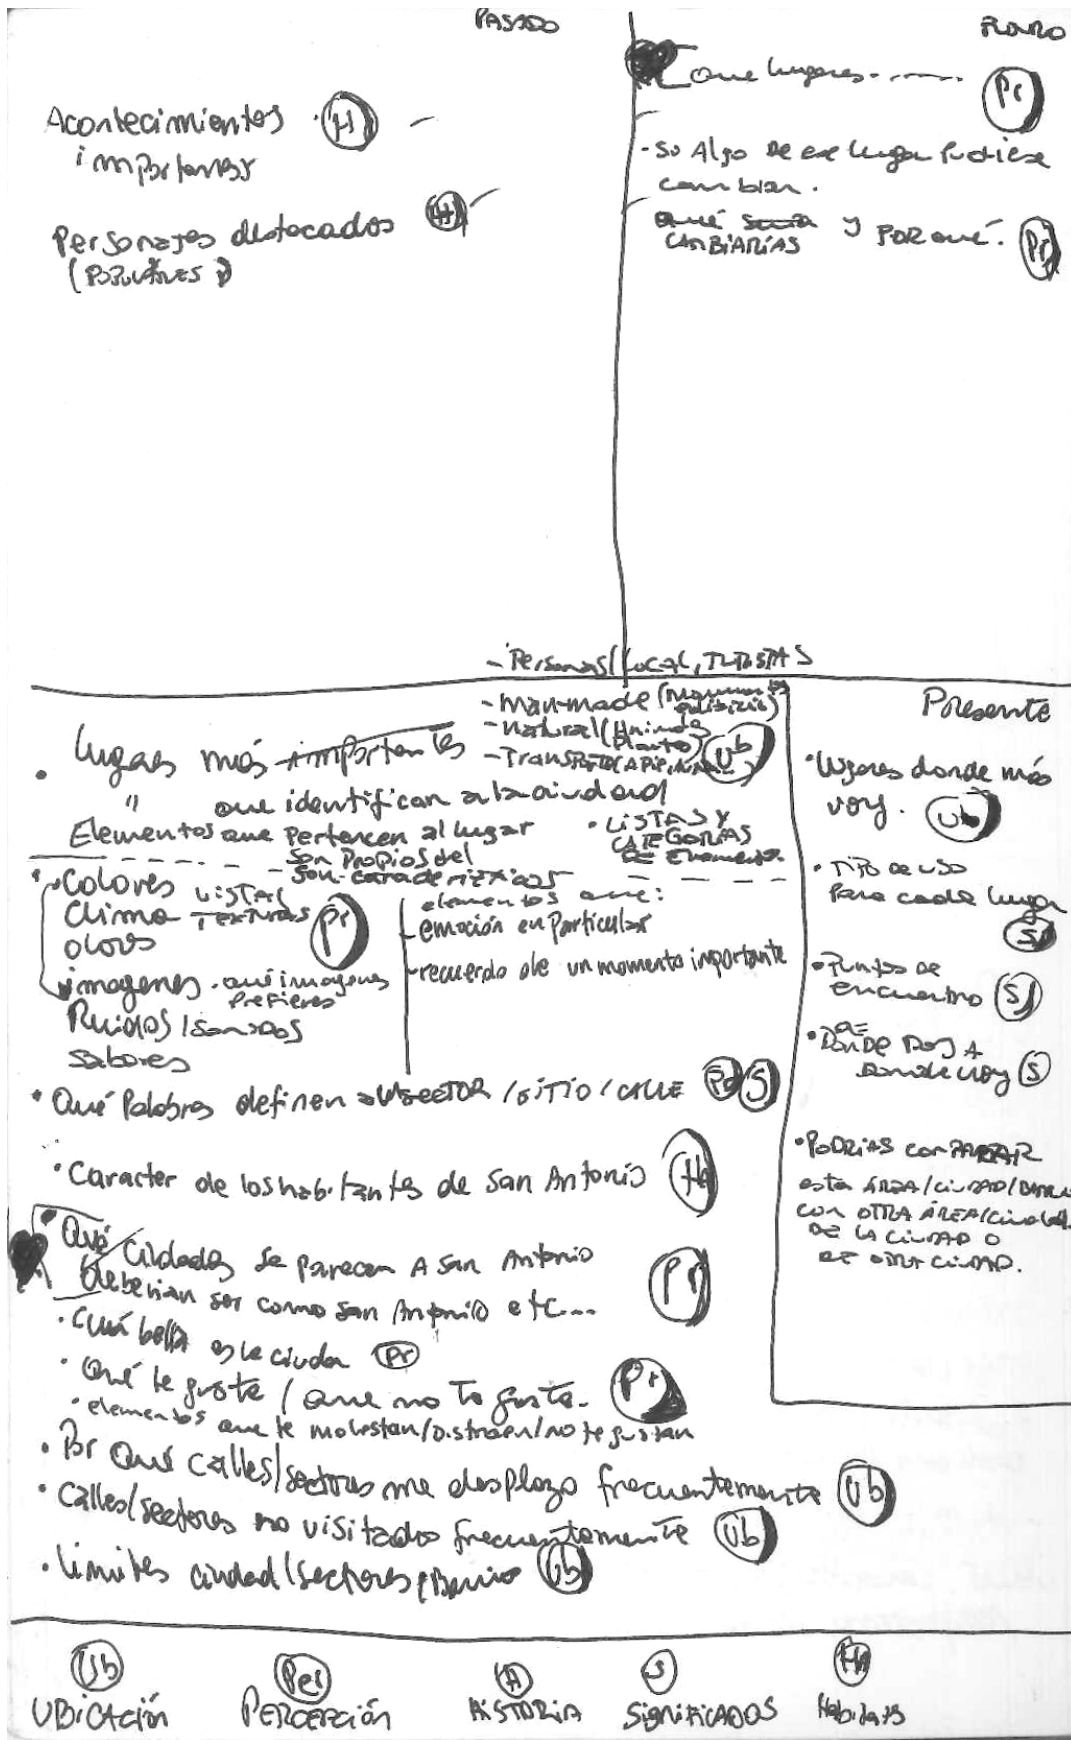 PASADO
Acontecimientos H
importantes
Personajes destacados H
(POPULARES)
FUTURO
Que lugares
Pr
Algo de ese lugar Pudiese
cambiar.
CAMBIARIAS y POR qué. Pr
- Personas (LOCAL, TURISTAS
- Man-made (
- Natural (Animales
Plantas)
- Transporte
Lugares más importantes Ub
" que identifican a la ciudad
Elementos que pertencen al lugar
son propios del
son caracterizticos
• LISTAS Y
CATEGORIAS
DE
• Colores LISTAS
Clima TEXTURAS
olores
Pr
imagenes. qué imagenes
Prefieres
Ruidos / Sonidos
sabores
elementos que:
- emoción en particular
- recuerdo de un momento importante
• Qué Palabras definen SECTOR / SITIO / CALLE S
• Caracter de los habitantes de San Antonio Ha
• Qué Ciudades se parecen A San Antonio
deberian ser como San Antonio etc... Pr
• Cuá bella es la ciuda Pr
• Qué te gusta / Que no te gusta. Pr
• elementos que te molestan/Distraen/no te gustan
• Por Qué calles/sectores me desplazo frecuentemente Ub
• Calles/sectores no visitados frecuentemente Ub
• Limites ciudad/sectores/Barrio Ub
Presente
• Lugares donde más
voy. Ub
• Tipo de uso
Para cada lugar
S
• Puntos de
encuentro S
• DE
DONDE A
Donde voy S
• PODRIAS COMPARAR
esta ÁREA/CIUDAD/
CON OTRA ÁREA/
DE LA CIUDAD O
DE OTRA CIUDAD.
Ub
UBICACIÓN
Per
PERCEPCIÓN
H
HISTORIA
S
SIGNIFICADOS
Ha